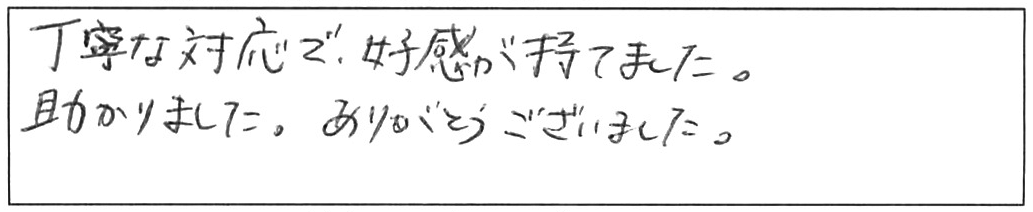 丁寧な対応で、好感が持てました。
助かりました。ありがとうございました。